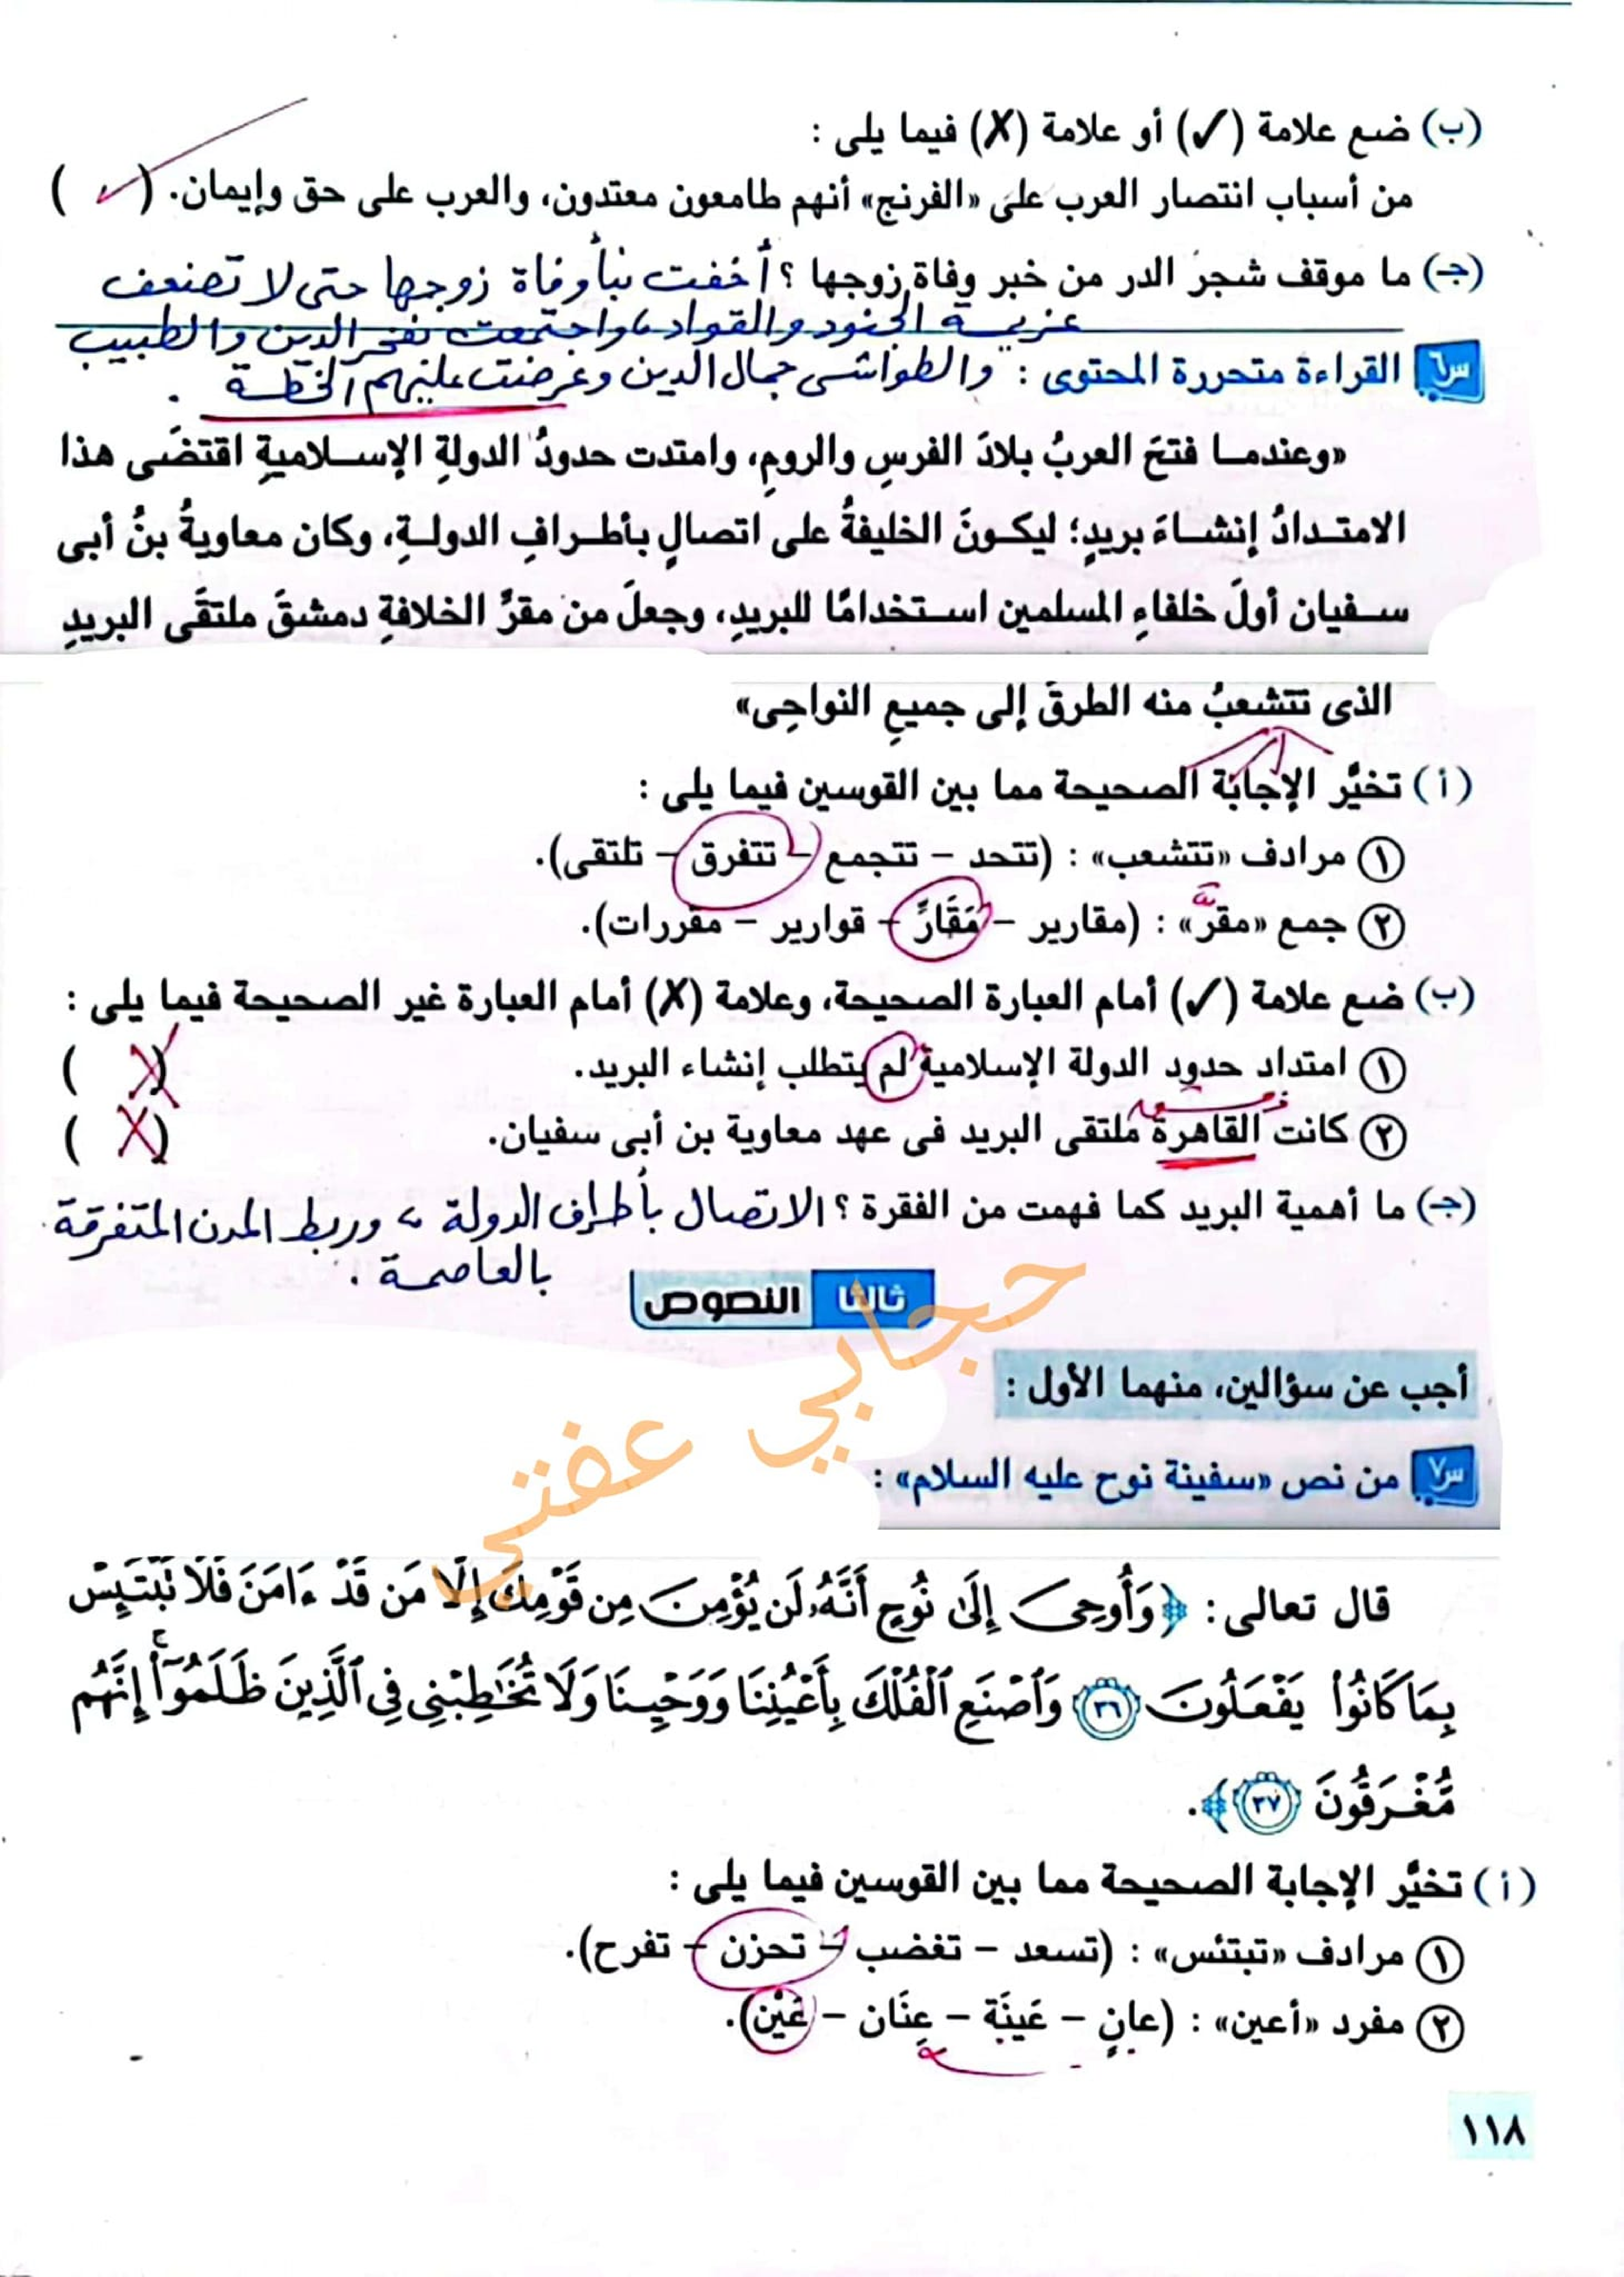 (ب) ضع علامة (✓) أو علامة (✗) فيما يلى :
من أسباب انتصار العرب على «الفرنج» أنهم طامعون معتدون، والعرب على حق وإيمان. ( ✓ )
(جـ) ما موقف شجر الدر من خبر وفاة زوجها ؟ أخفت نبأ وفاة زوجها حتى لا تضعف
عزيمة الجنود والقواد، واجتمعت بفخر الدين والطبيب
س٦ القراءة متحررة المحتوى : والطواشى جمال الدين وعرضت عليهم الخطة .
«وعندمـا فتحَ العربُ بلادَ الفرسِ والرومِ، وامتدت حدودُ الدولةِ الإسـلاميةِ اقتضَى هذا
الامتـدادُ إنشـاءَ بريدٍ؛ ليكـونَ الخليفةُ على اتصالٍ بأطـرافِ الدولـةِ، وكان معاويةُ بنُ أبى
سـفيان أولَ خلفاءِ المسلمين استـخدامًا للبريدِ، وجعلَ من مقرِّ الخلافةِ دمشقَ ملتقَى البريدِ
الذى تتشعبُ منه الطرقُ إلى جميعِ النواحِى»
(أ) تخيَّر الإجابة الصحيحة مما بين القوسين فيما يلى :
١ مرادف «تتشعب» : (تتحد – تتجمع – تتفرق – تلتقى).
٢ جمع «مقرّ» : (مقارير – مَقَارّ – قوارير – مقررات).
(ب) ضع علامة (✓) أمام العبارة الصحيحة، وعلامة (✗) أمام العبارة غير الصحيحة فيما يلى :
١ امتداد حدود الدولة الإسلامية لم يتطلب إنشاء البريد. ( X )
٢ كانت القاهرة ملتقى البريد فى عهد معاوية بن أبى سفيان. ( X )
(جـ) ما أهمية البريد كما فهمت من الفقرة ؟ الاتصال بأطراف الدولة، وربط المدن المتفرقة
بالعاصمة .
ثالثا النصوص
حجابي عفتي
أجب عن سؤالين، منهما الأول :
س٧ من نص «سفينة نوح عليه السلام» :
قال تعالى : ﴿وَأُوحِىَ إِلَىٰ نُوحٍ أَنَّهُۥ لَن يُؤْمِنَ مِن قَوْمِكَ إِلَّا مَن قَدْ ءَامَنَ فَلَا تَبْتَئِسْ
بِمَا كَانُوا۟ يَفْعَلُونَ ٣٦ وَٱصْنَعِ ٱلْفُلْكَ بِأَعْيُنِنَا وَوَحْيِنَا وَلَا تُخَٰطِبْنِى فِى ٱلَّذِينَ ظَلَمُوٓا۟ ۚ إِنَّهُم
مُّغْرَقُونَ ٣٧﴾.
(أ) تخيَّر الإجابة الصحيحة مما بين القوسين فيما يلى :
١ مرادف «تبتئس» : (تسعد – تغضب – تحزن – تفرح).
٢ مفرد «أعين» : (عانٍ – عَينَة – عِنَان – عَيْن).
١١٨